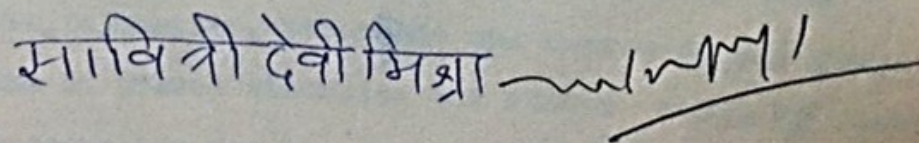 सावित्री देवी मिश्रा